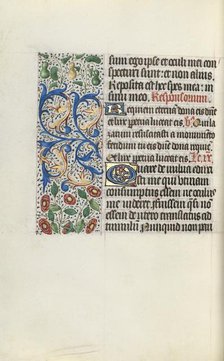 sum ego ipse et oculi mei con
specturi sunt: et non alius.
Reposita est hec spes mea: in
sinu meo. Responsorium.
Requiem eternam dona eis dne
lux perpetua luceat eis. V. Qui la
in monumento
dona requi
et lux perpetua luceat eis. Lc. ix.
Quare de vulva eduxi
sti me qui utinam
consumptus essem ne oculus
me videret. fuissem quasi non
essem de utero translatus ad
tumulum. Nunquid non pau